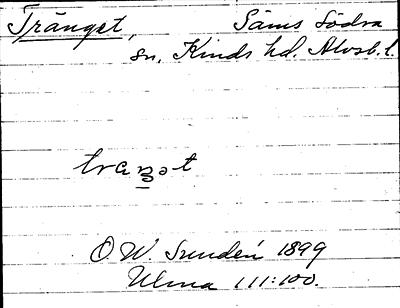 Trånget, Säms Södra
sn, Kinds hd. Älvsb. l.
traŋət
O. W. Sundén 1899
Ulma 111:100.